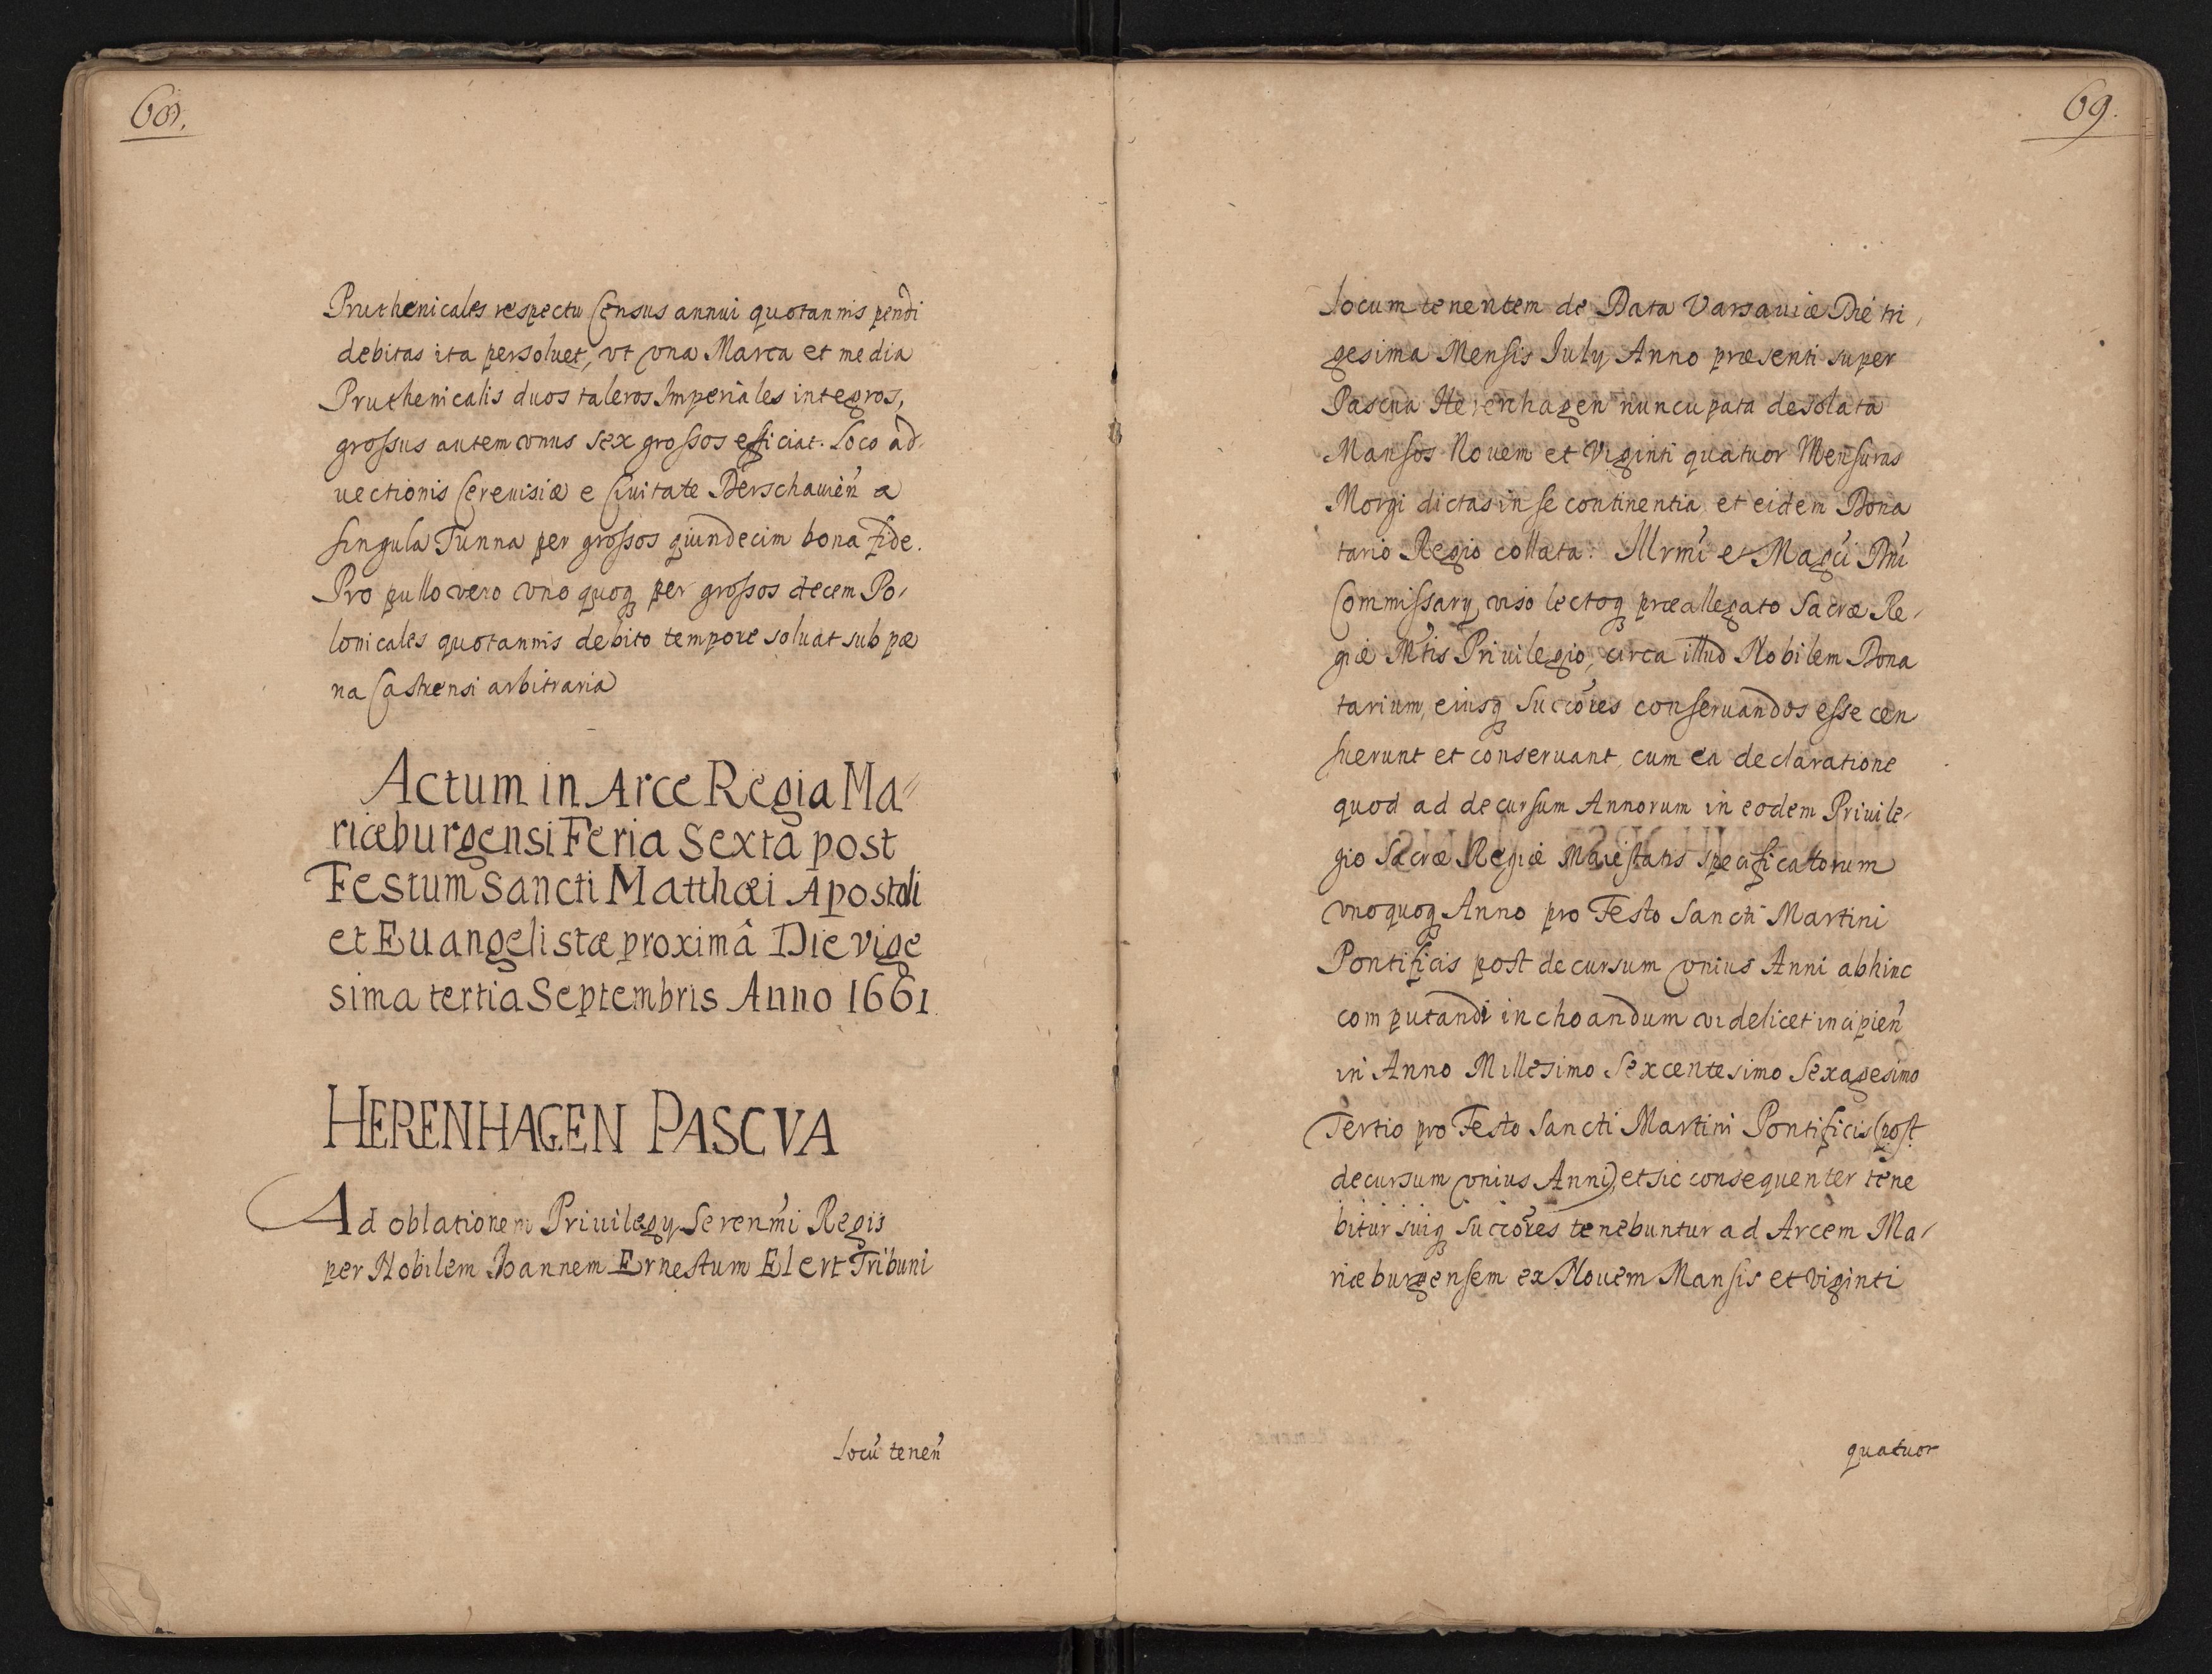 68.
Pruthenicales respectu Census annui quotannis pendi
debitas ita persoluet, vt vna Marca et media
Pruthenicalis duos taleros Imperiales integros,
grossus autem vnus sex grossos efficiat. Loco ad-
uectionis Cereuisiæ e Ciuitate Derschauień a
singula Tunna per grossos quindecim bona fide.
Pro pullo vero vno quoq per grossos decem Po-
lonicales quotannis debito tempore soluat sub pæ
na Castrensi arbitraria
Actum in Arce Regia Ma=
riæburgensi Feria Sexta post
Festum Sancti Matthæi Apostoli
et Euangelistæ proximâ Die vige
sima tertia Septembris Anno 1661.
HERENHAGEN PASCVA
Ad oblationem Priuilegy Serenḿi Regis
per Nobilem Ioannem Ernestum Elert Tribuni
Locú teneń
69.
Locum tenentem de Data Varsauiæ Die tri,
gesima Mensis July Anno præsenti super
Pascua Herenhagen nuncupata desolata
Mansos Nouem et Viginti quatuor Mensuras
Morgi dictas in se continentia et eidem Dona
tario Regio collata. Illrmí et Magći Dńi
Commissary viso lectoq præallegato Sacræ Re-
giæ Mtis Priuilegio, circa illud Nobilem Dona
tarium, eiusq Succóres conseruandos esse cen
suerunt et conseruant, cum ea declaratione
quod ad decursum Annorum in eodem Priuile-
gio Sacræ Regiæ Maiestatis specificatorum
vnoquoq Anno pro Festo Sancti Martini
Pontificis post decursum vnius Anni abhinc
computandi inchoandum videlicet incipień
in Anno Millesimo Sexcentesimo Sexagesimo
Tertio pro Festo Sancti Martini Pontificis (post
decursum vnius Anni), et sic consequenter tene
bitur suiq Succóres tenebuntur ad Arcem Ma-
riæburgensem ex Nouem Mansis et viginti
quatuor